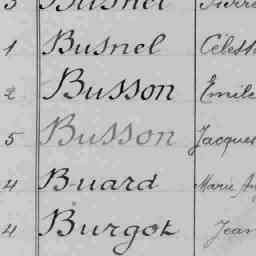 5 Busnel Pierre
1 Busnel Célest
2 Busson Emile
5 Busson Jacques
4 Buard Marie Au
4 Burgot Jean